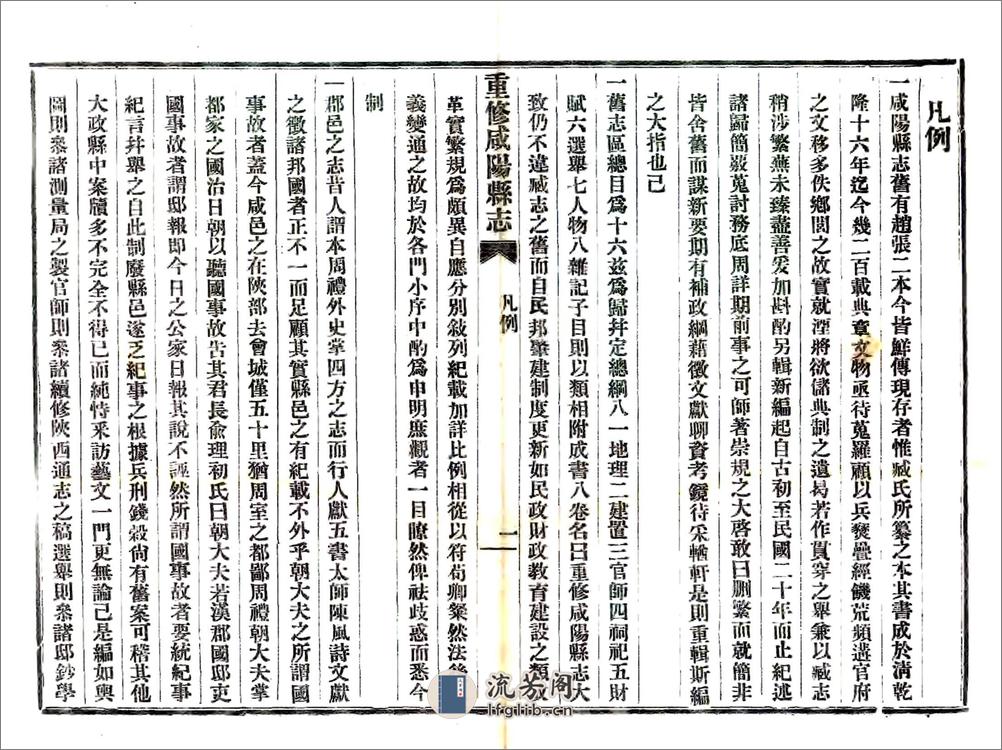 凡例
一咸陽縣志舊有趙張二本今皆鮮傳現存者惟臧氏所纂之本其書成於清乾
隆十六年迄今幾二百載典章文物亟待蒐羅顧以兵燹疊經饑荒頻遘官府
之文移多佚鄉閭之故實就湮將欲儲典制之遺曷若作貫穿之舉兼以臧志
稍涉繁蕪未臻盡善爰加斟酌另輯新編起自古初至民國二十年而止紀述
諸歸簡嚴蒐討務底周詳期前事之可師著崇規之大啓敢曰刪繁而就簡非
皆舍舊而謀新要期有補政綱藉徵文獻聊資考鏡待采輶軒是則重輯斯編
之大指也已
一舊志區總目爲十六兹爲歸并定總綱八一地理二建置三官師四祠祀五財
賦六選舉七人物八雜記子目則以類相附成書八卷名曰重修咸陽縣志大
致仍不違臧志之舊而自民邦肇建制度更新如民政財政教育建設之類
重修咸陽縣志
凡例
一
革實繁規爲頗異自應分別敍列紀載加詳比例相從以符荀卿粲然法後
義變通之故均於各門小序中酌爲申明庶觀者一目瞭然俾袪歧惑而悉今
制
一郡邑之志昔人謂本周禮外史掌四方之志而行人獻五書太師陳風詩文獻
之徵諸邦國者正不一而足顧其實縣邑之有紀載不外乎朝大夫之所謂國
事故者蓋今咸邑之在陝部去會城僅五十里猶周室之都鄙周禮朝大夫掌
都家之國治日朝以聽國事故告其君長俞理初氏曰朝大夫若漢郡國邸吏
國事故者謂邸報即今日之公家日報其說不誣然所謂國事故者要統紀事
紀言并舉之自此制廢縣邑遂乏紀事之根據兵刑錢穀尙有舊案可稽其他
大政縣中案牘多不完全不得已而純恃采訪藝文一門更無論已是編如輿
圖則叅諸測量局之製官師則叅諸續修陝西通志之稿選舉則叅諸邸鈔學
流芳阁
lfglib.cn